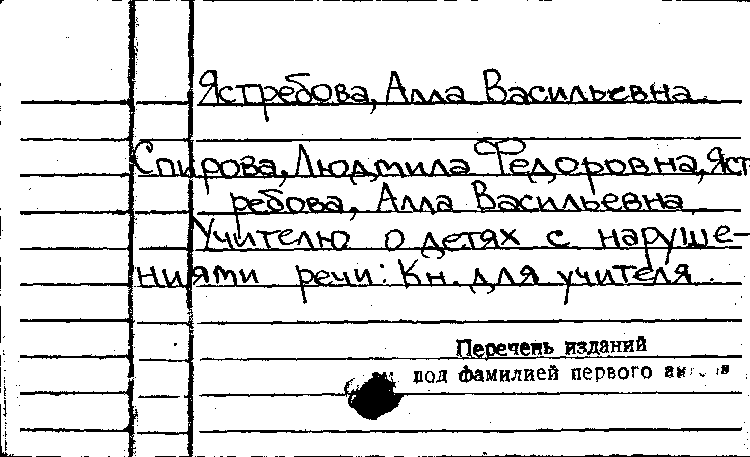 Ястребова, Алла Васильевна.
Спирова, Людмила Федоровна, Яст-
ребова, Алла Васильевна.
Учителю о детях с наруше-
ниями речи: Кн. для учителя.
Перечень изданий
под фамилией первого